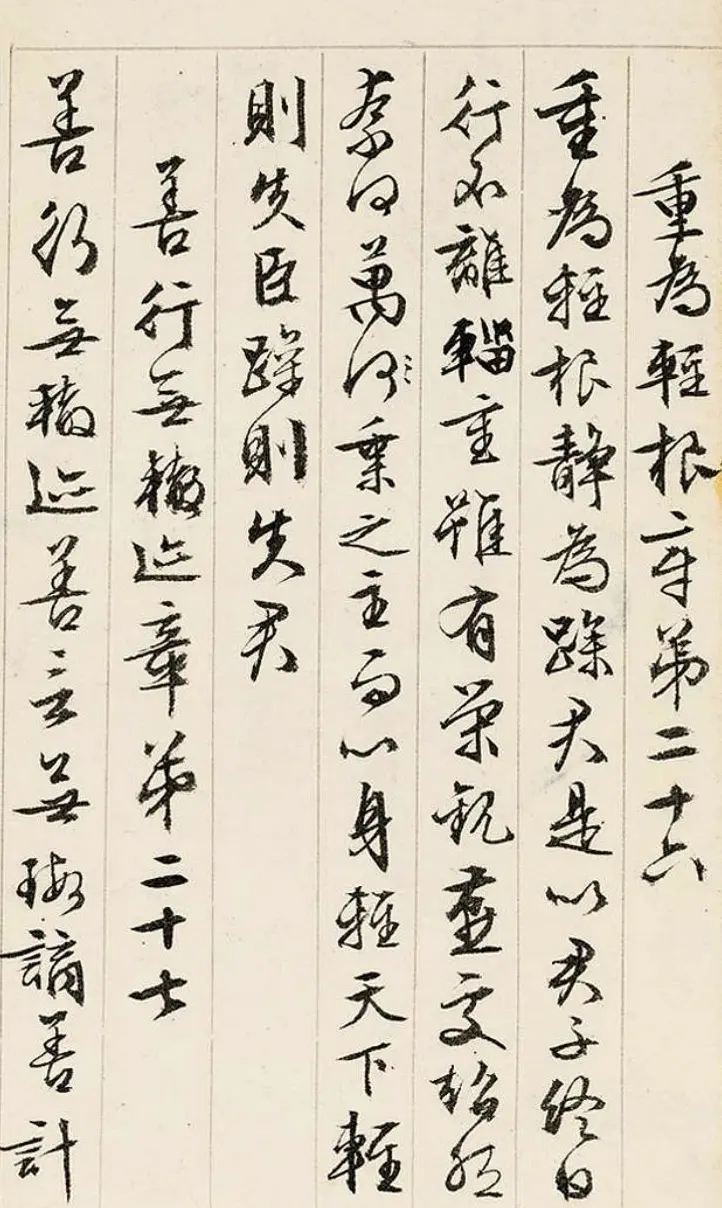 重為輕根章第二十六
重為輕根靜為躁君是以君子終日
行不離輜重雖有榮觀燕處超然
奈何萬何乗之主而以身輕天下輕
則失臣躁則失君
善行無轍迹章第二十七
善行無轍迹善言無瑕謫善計